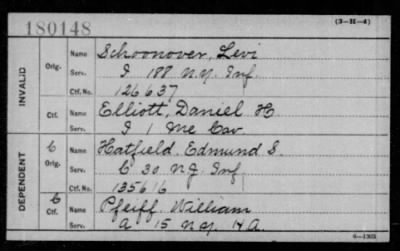 180148 (3-H-4)
INVALID
Orig. Name Schoonover, Levi
Serv. I 188 N.Y. Inf.
Ctf. No. 126637
Ctf. Name Elliott, Daniel H
Serv. I 1 Me Cav.
DEPENDENT
C Orig. Name Hatfield, Edmund S.
Serv. C 30 N.J. Inf.
Ctf. No. 135616
C Ctf. Name Pfeiff, William
Serv. A 15 N.Y. H.A.